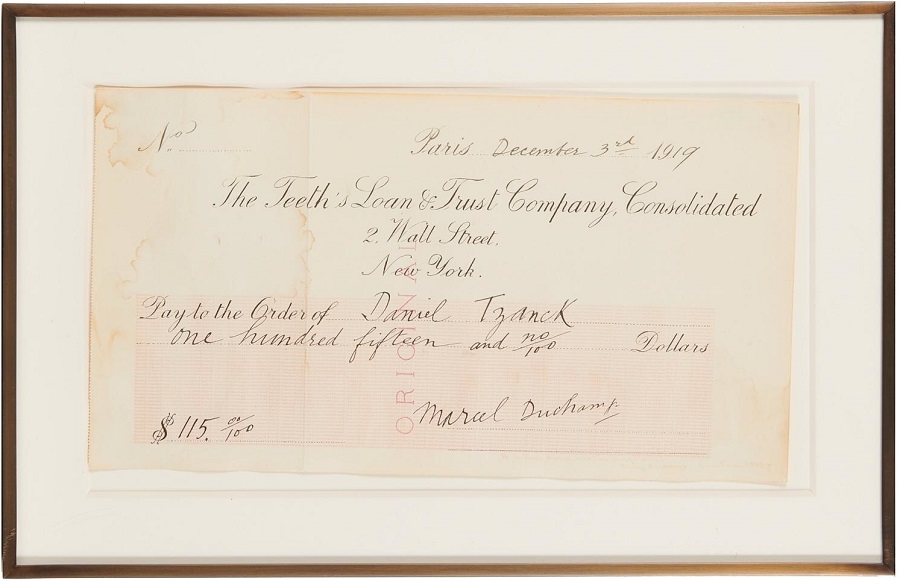 No.
Paris December 3rd 1919
The Teeth's Loan & Trust Company, Consolidated
2. Wall Street.
New York.
Pay to the Order of Daniel Tzanck
one hundred fifteen and no/100 Dollars
$ 115. oo/100
Marcel Duchamp
ORIGINAL